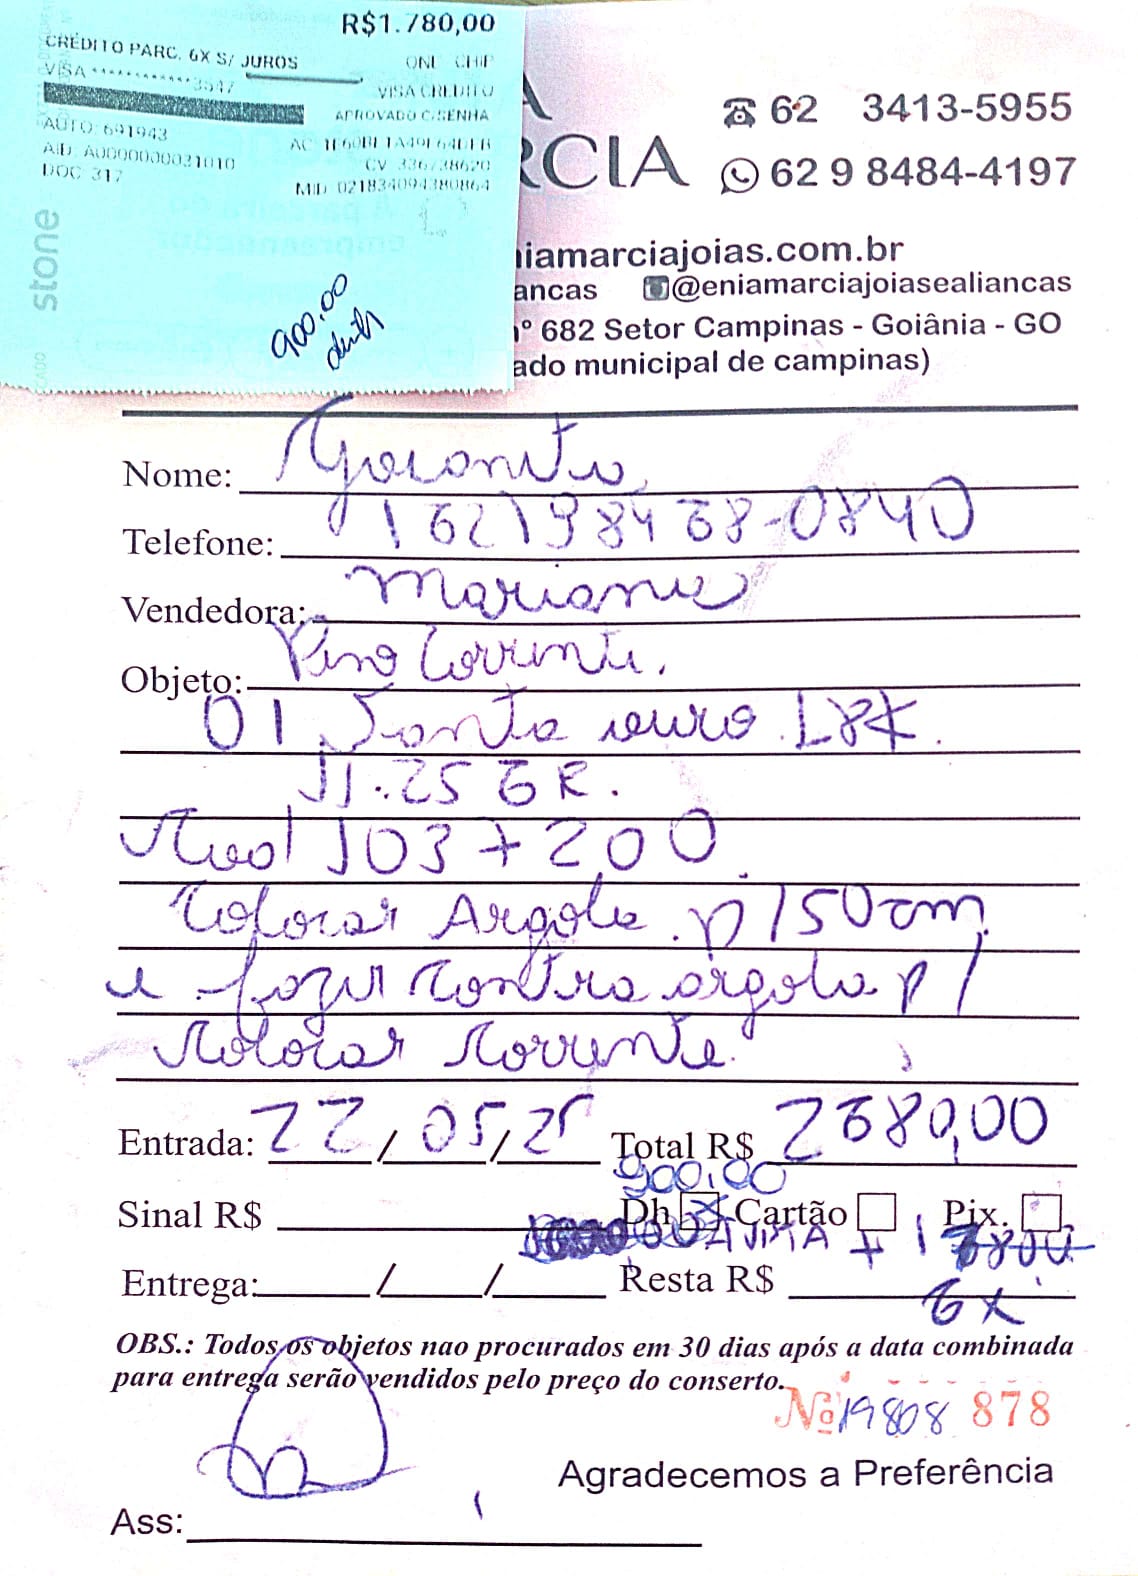 R$1.780,00
CRÉDITO PARC. 6X S/ JUROS
ONE CHIP
VISA ************3547
VISA CREDITO
APROVADO C/SENHA
AUTO: 691943
AID: A0000000031010
DOC 317
MID 021834094380864
stone
900,00
RCIA
62 3413-5955
62 9 8484-4197
niamarciajoias.com.br
ancas @eniamarciajoiasealiancas
nº 682 Setor Campinas - Goiânia - GO
ado municipal de campinas)
Nome:
Telefone: (62) 98468-0840
Vendedora: Mariane
Objeto: Pino Corrente.
01 Santa ouro 18K.
11.25 GR.
Mod 103 + 200
Colocar Argola p/50cm
e fazer contra argola p/
Colocar Corrente.
Entrada: 22/05/25 Total R$ 2680,00
900,00
Sinal R$ Dh X Cartão Pix.
AVISTA + 1
Entrega: / / Resta R$
6X
OBS.: Todos os objetos nao procurados em 30 dias após a data combinada
para entrega serão vendidos pelo preço do conserto.
Nº 19808 878
Agradecemos a Preferência
Ass: